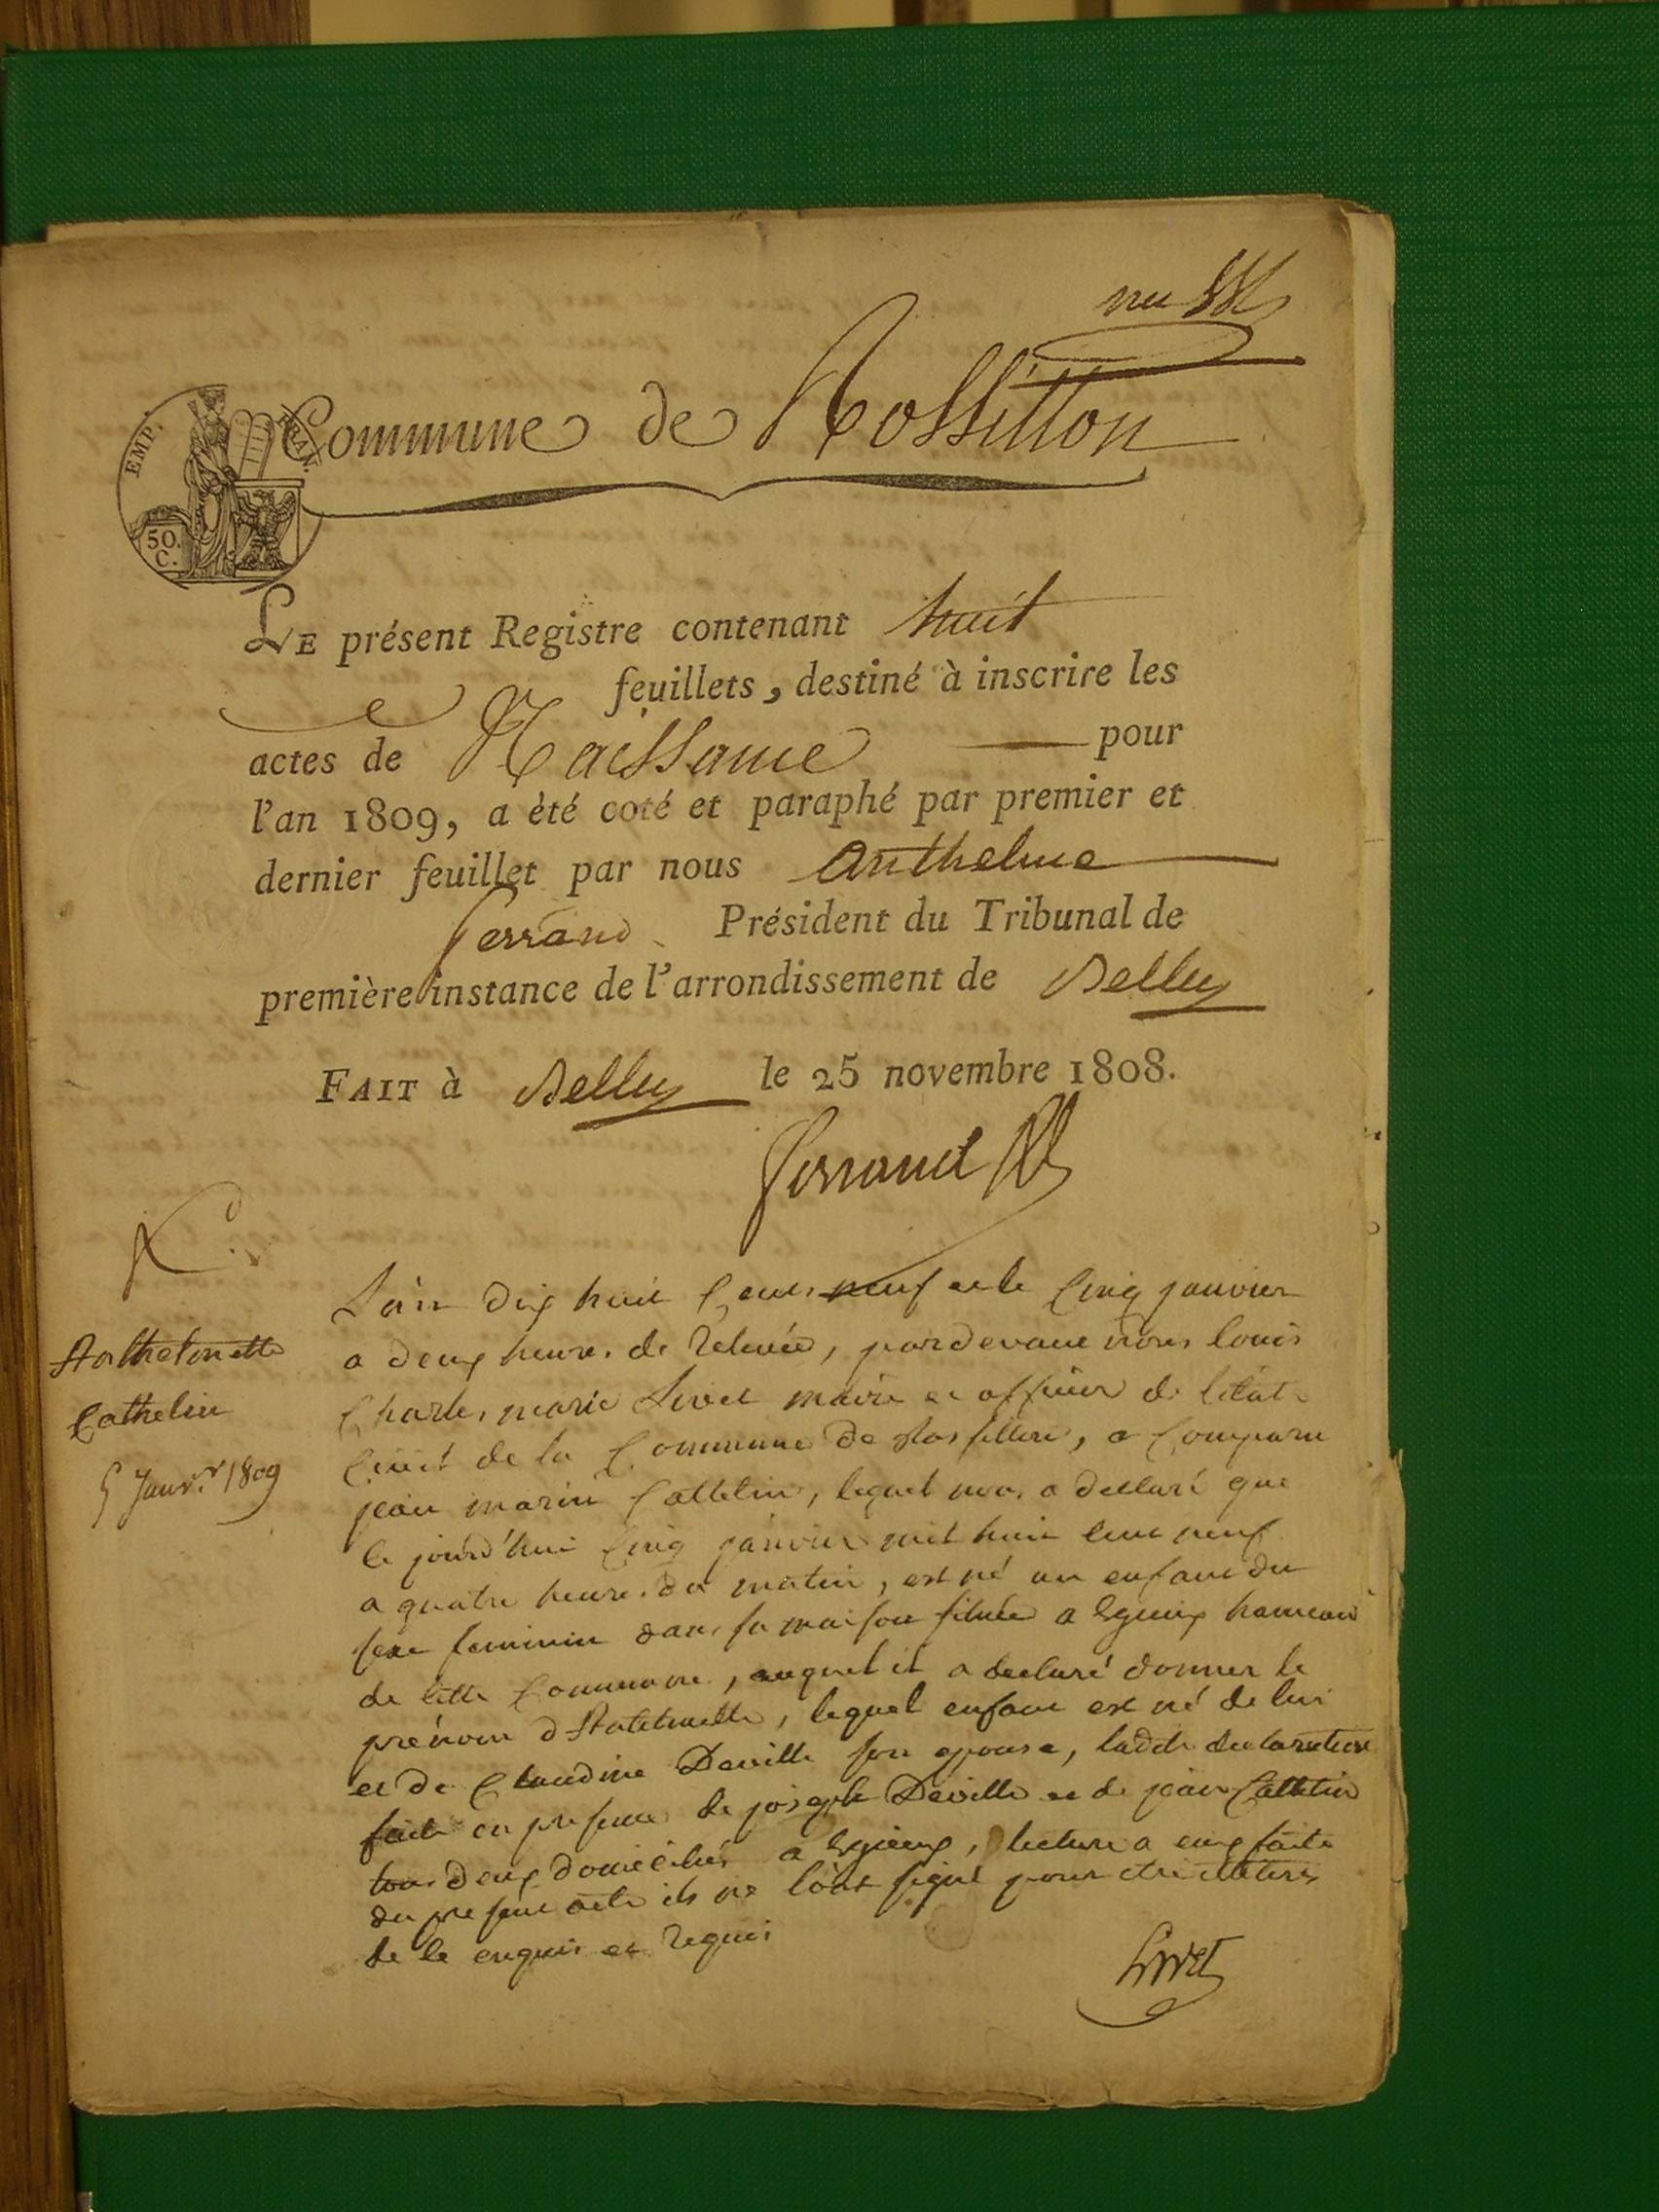 EMP.
FRAN.
50.
C.
Commune de Rossillon
LE présent Registre contenant huit
feuillets, destiné à inscrire les
actes de Naissance pour
l'an 1809, a èté coté et paraphé par premier et
dernier feuillet par nous Anthelme
ferrand Président du Tribunal de
première instance de l'arrondissement de Belley
FAIT à Belley le 25 novembre 1808.
ferrand
Cathelin
5 Janv.r 1809
L'an dix huit Cent neuf et le Cinq janvier
a deux heures de relevée, pardevant nous louis
Charles marie Livet maire et officier de l'état
Civil de la Commune de Rossillon, a Comparu
jean marin Cattelin, lequel nous a declaré que
le jourd'hui Cinq janvier mil huit cent neuf
a quatre heures du matin, est né un enfant du
sexe feminin dans sa maison située a hameau
de cette Commune, auquel il a declaré donner le
prénom lequel enfant est né de lui
et de Claudine Deville son epouse, ladite declaration
faite en presence de joseph Deville et de jean Cattelin
tous deux domiciliés a lecture a eux faite
du present acte ils ne l'ont signé pour etre illiterés
de ce enquis et requis
Livet